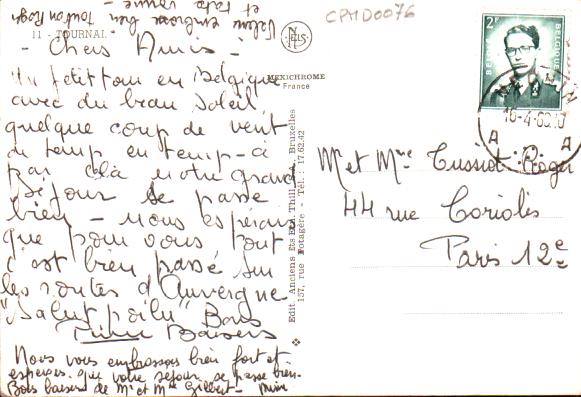 Valérie embrasse bien Tonton Roger
et tata
CPMD0076
11 - TOURNAI
- Chers Amis -
Un petit tour en Belgique
avec du beau soleil
quelque coup de vent
de temp en temp - à
par celà notre grand
séjour se passe
bien - nous espérons
que pour vous tout
c'est bien passé sur
les routes d'Auvergne
"Salut poilu" Bons
Mimi Baisers
Nous vous embrassons bien fort et
espérons que votre séjour se passe bien
Bons baisers de Mr et Mme Gilbert - Mimi
MEXICHROME
France
Edit. Anciens Ets Ern. Thill, S.A. Bruxelles
157, rue Potagère - Tél.: 17.62.42
2F
BELGIE BELGIQUE
A A
Mr et Mme Tussiot Roger
44 rue Coriolis
Paris 12e